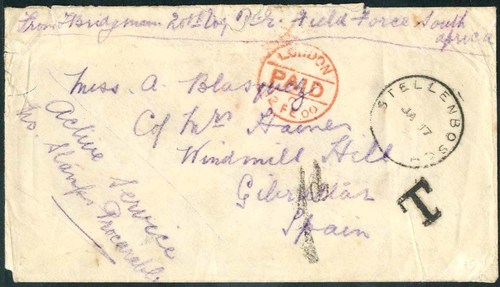 From Bridgman 20th Coy Field Force South
Africa
LONDON
PAID
2 FE 00
STELLENBOSCH
JA 17
Miss. A. Blasquez
C/o Mrs Haines
Windmill Hill
Gibraltar
Spain
Active Service
No Stamps Procurable
T